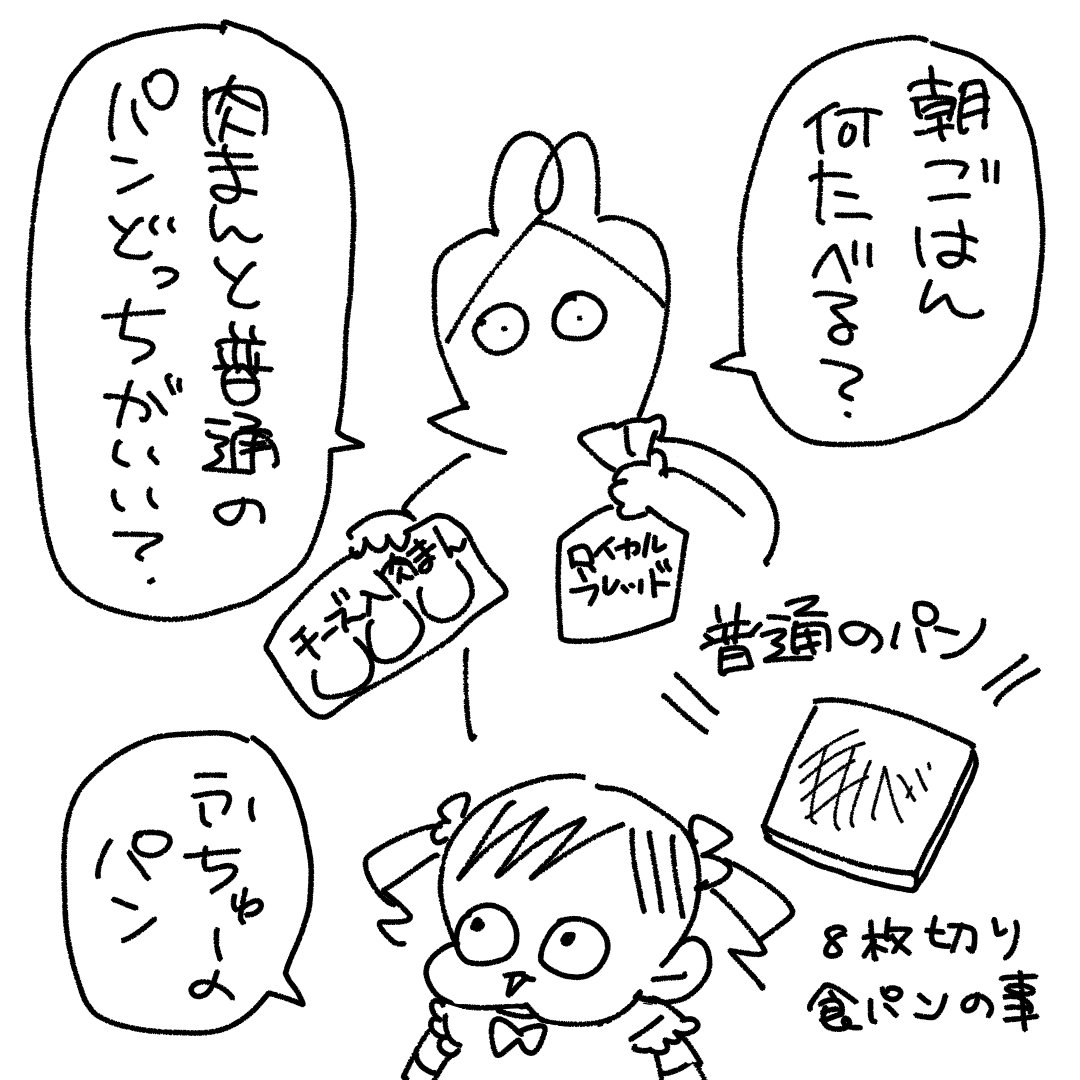 朝ごはん
何たべる?
肉まんと普通の
パンどっちがいい?
チーズ
肉まん
ロイヤル
ブレッド
普通のパン
8枚切り
食パンの事
ふちゅーの
パン